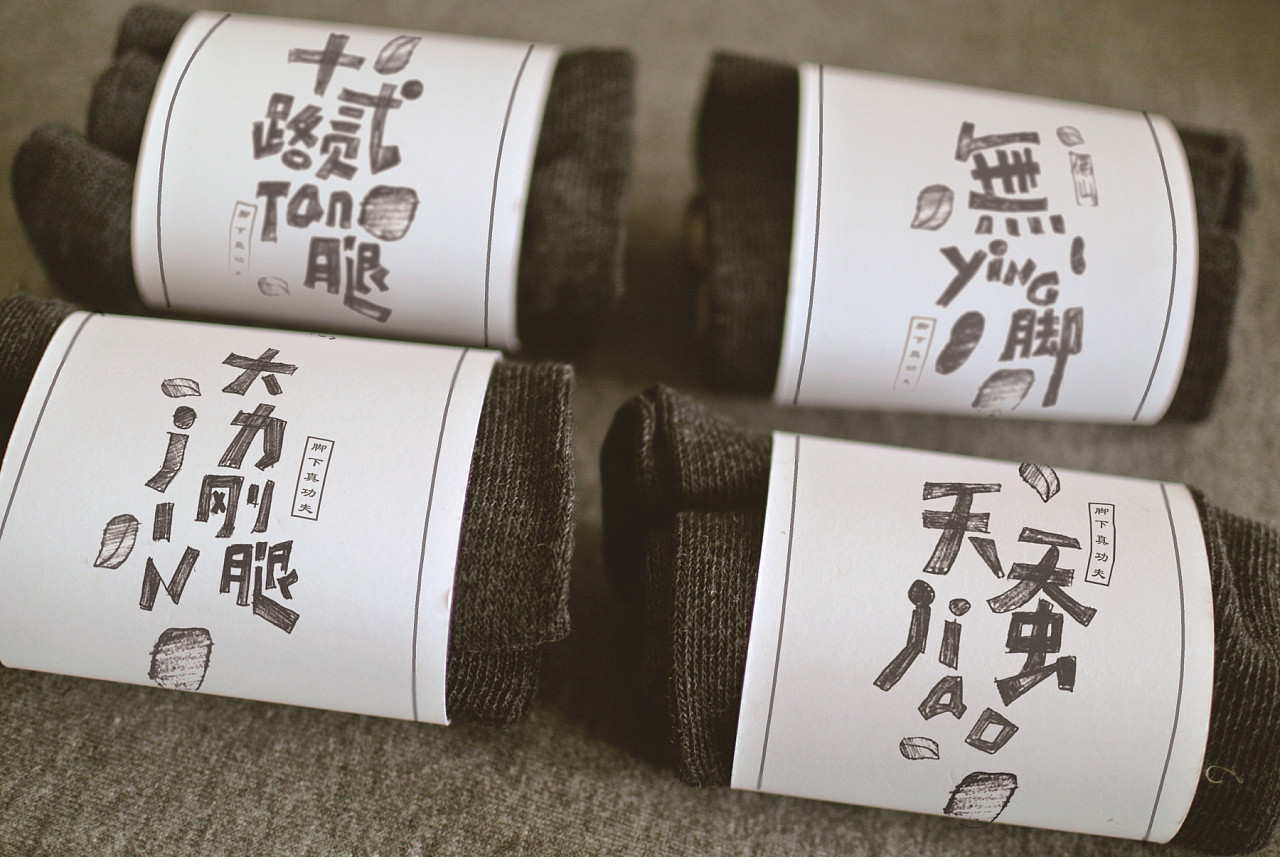 十贰
路
Tan
腿
脚下真功夫
佛山
無
yiNG
脚
脚下真功夫
大力
jiN
刚腿
脚下真功夫
天蚕
jiao
脚下真功夫